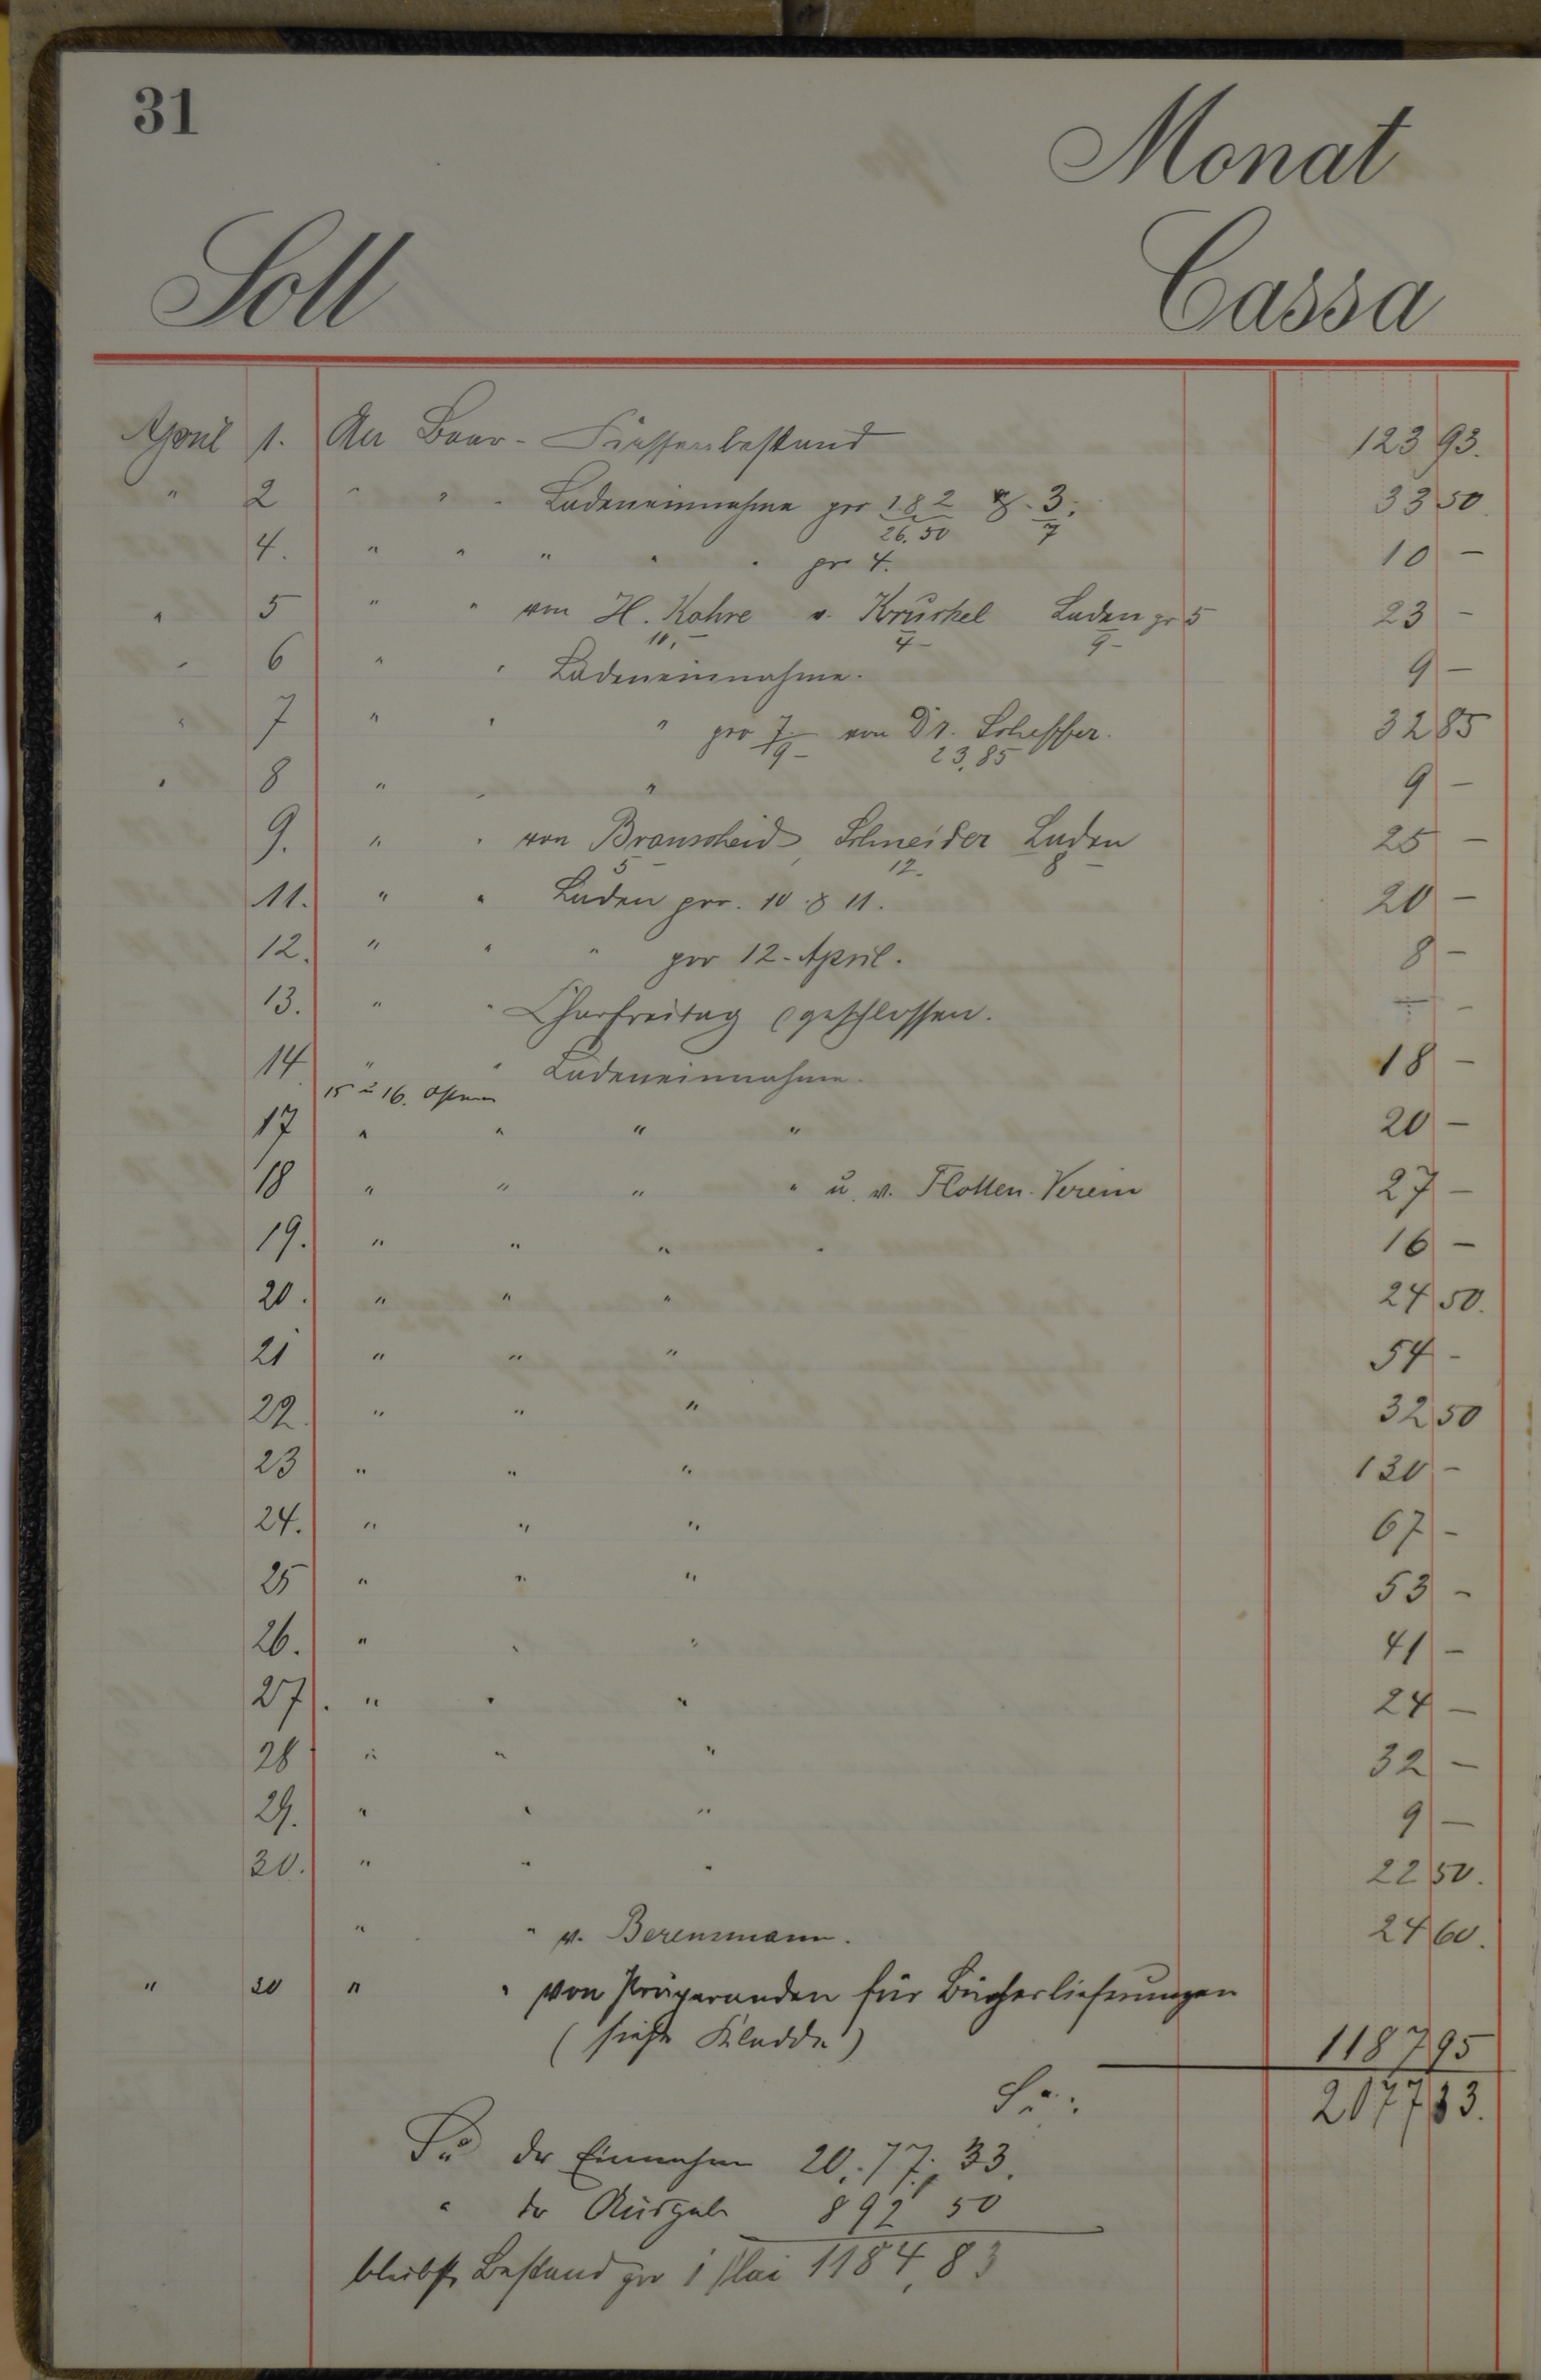 31
Monat
Soll Cassa
April 1. An Baar- Cassenbestand 123 93.
" 2 " " " Ladeneinnahme per 1 & 2 & 3. 33 50
26.50 7
4. " " " " " per 4. 10 -
" 5 " " von H. Kohre v. Kruskel Laden pr 5 23 -
10,- 4- 9-
" 6 " " Ladeneinnahme. 9 -
" 7 " " " per 7. von Dr. Scheffer. 32 85
9- 23,85
" 8 " " " 9 -
9. " " von Branscheid, Schneider Laden 25 -
5 12. 8-
11. " " Laden per. 10 & 11. 20 -
12. " " " per 12. April. 8 -
13. " " Charfreitag geschlossen. - -
14 " " Ladeneinnahme. 18 -
15 u 16. Ostern
17 " " " " 20 -
18 " " " " u. v. Flotten-Verein 27 -
19. " " " " 16 -
20. " " " 24 50.
21 " " " 54 -
22. " " " 32 50
23 " " " 130 -
24. " " " 67 -
25 " " " 53 -
26. " " " 41 -
27. " " " 24 -
28 " " " 32 -
29. " " " 9 -
30. " " " 22 50.
" " v. Berensmann. 24 60.
" 30 " " von Präparanden für Bücherlieferungen
(siehe Kladde) 1187 95
Sa. 2077 33.
Sa der Einnahme 20.77. 33.
" der Ausgabe 892 50
bleibt Bestand per 1 Mai 1184,83